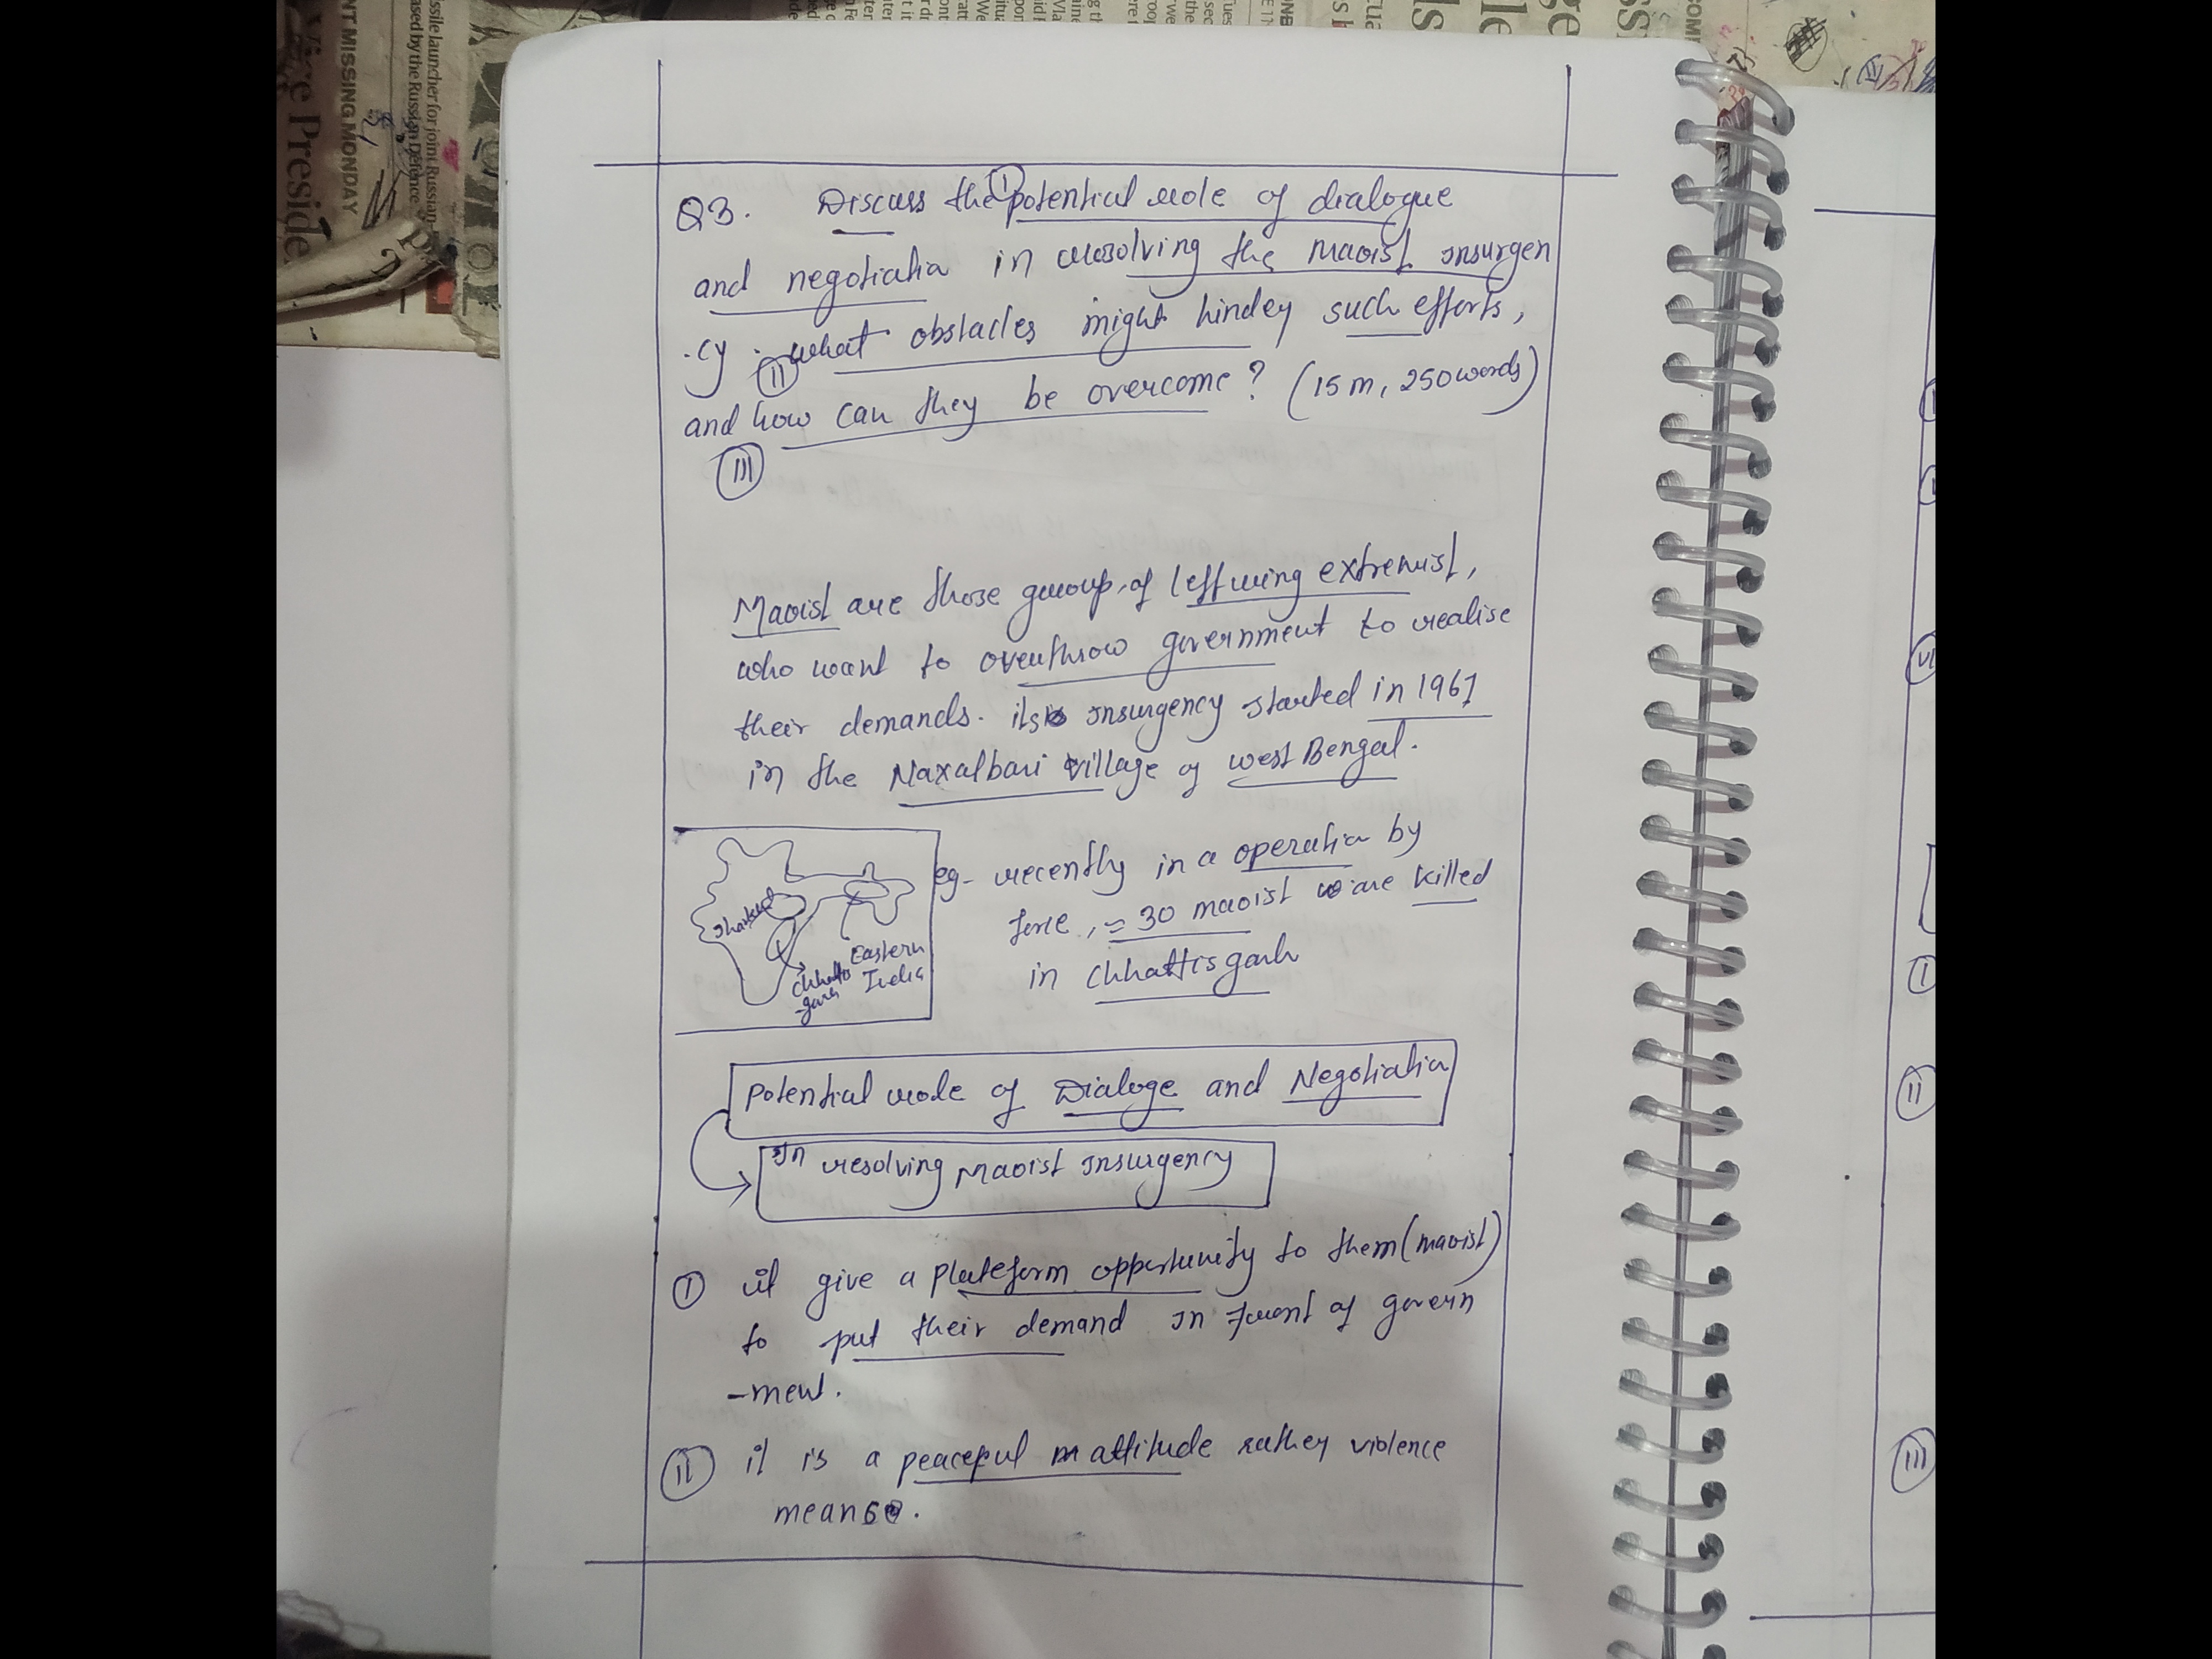 Q3. Discuss the potential role of dialogue
I
and negotiation in resolving the Maoist insurgen
-cy. what obstacles might hinder such efforts,
II
and how can they be overcome? (15m, 250words)
III
Maoist are those group of left wing extremist,
who want to overthrow government to realise
their demands. its insurgency started in 1967
in the Naxalbari village of West Bengal.
Eastern
India
Chhattis
-garh
eg- recently in a operation by
force, = 30 maoist are killed
in Chhattisgarh
Potential role of Dialoge and Negotiation
In resolving Maoist Insurgency
I it give a plateform opportunity to them (maoist)
to put their demand in front of govern
-ment.
II it is a peaceful attitude rather violence
means.
NT MISSING MONDAY
ssile launcher for joint Russian-
ased by the Russian Defence
Vice Preside
I
II
III
VI